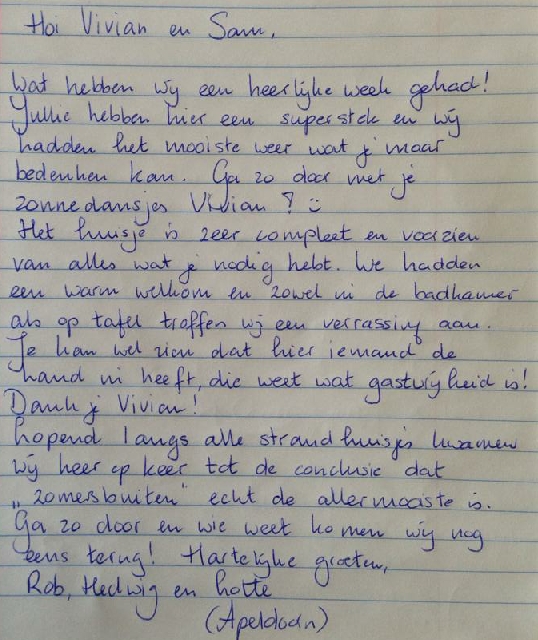 Hoi Vivian en Sam,
Wat hebben wij een heerlijke week gehad!
Jullie hebben hier een superstek en wij
hadden het mooiste weer wat je maar
bedenken kan. Ga zo door met je
zonnedansjes Vivian ? :)
Het huisje is zeer compleet en voorzien
van alles wat je nodig hebt. We hadden
een warm welkom en zowel in de badkamer
als op tafel troffen wij een verrassing aan.
Je kan wel zien dat hier iemand de
hand in heeft, die weet wat gastvrijheid is!
Dank je Vivian!
Lopend langs alle strandhuisjes kwamen
wij keer op keer tot de conclusie dat
„zomersbuiten" echt de allermooiste is.
Ga zo door en wie weet komen wij nog
eens terug! Hartelijke groeten,
Rob, Hedwig en Lotte
(Apeldoorn)